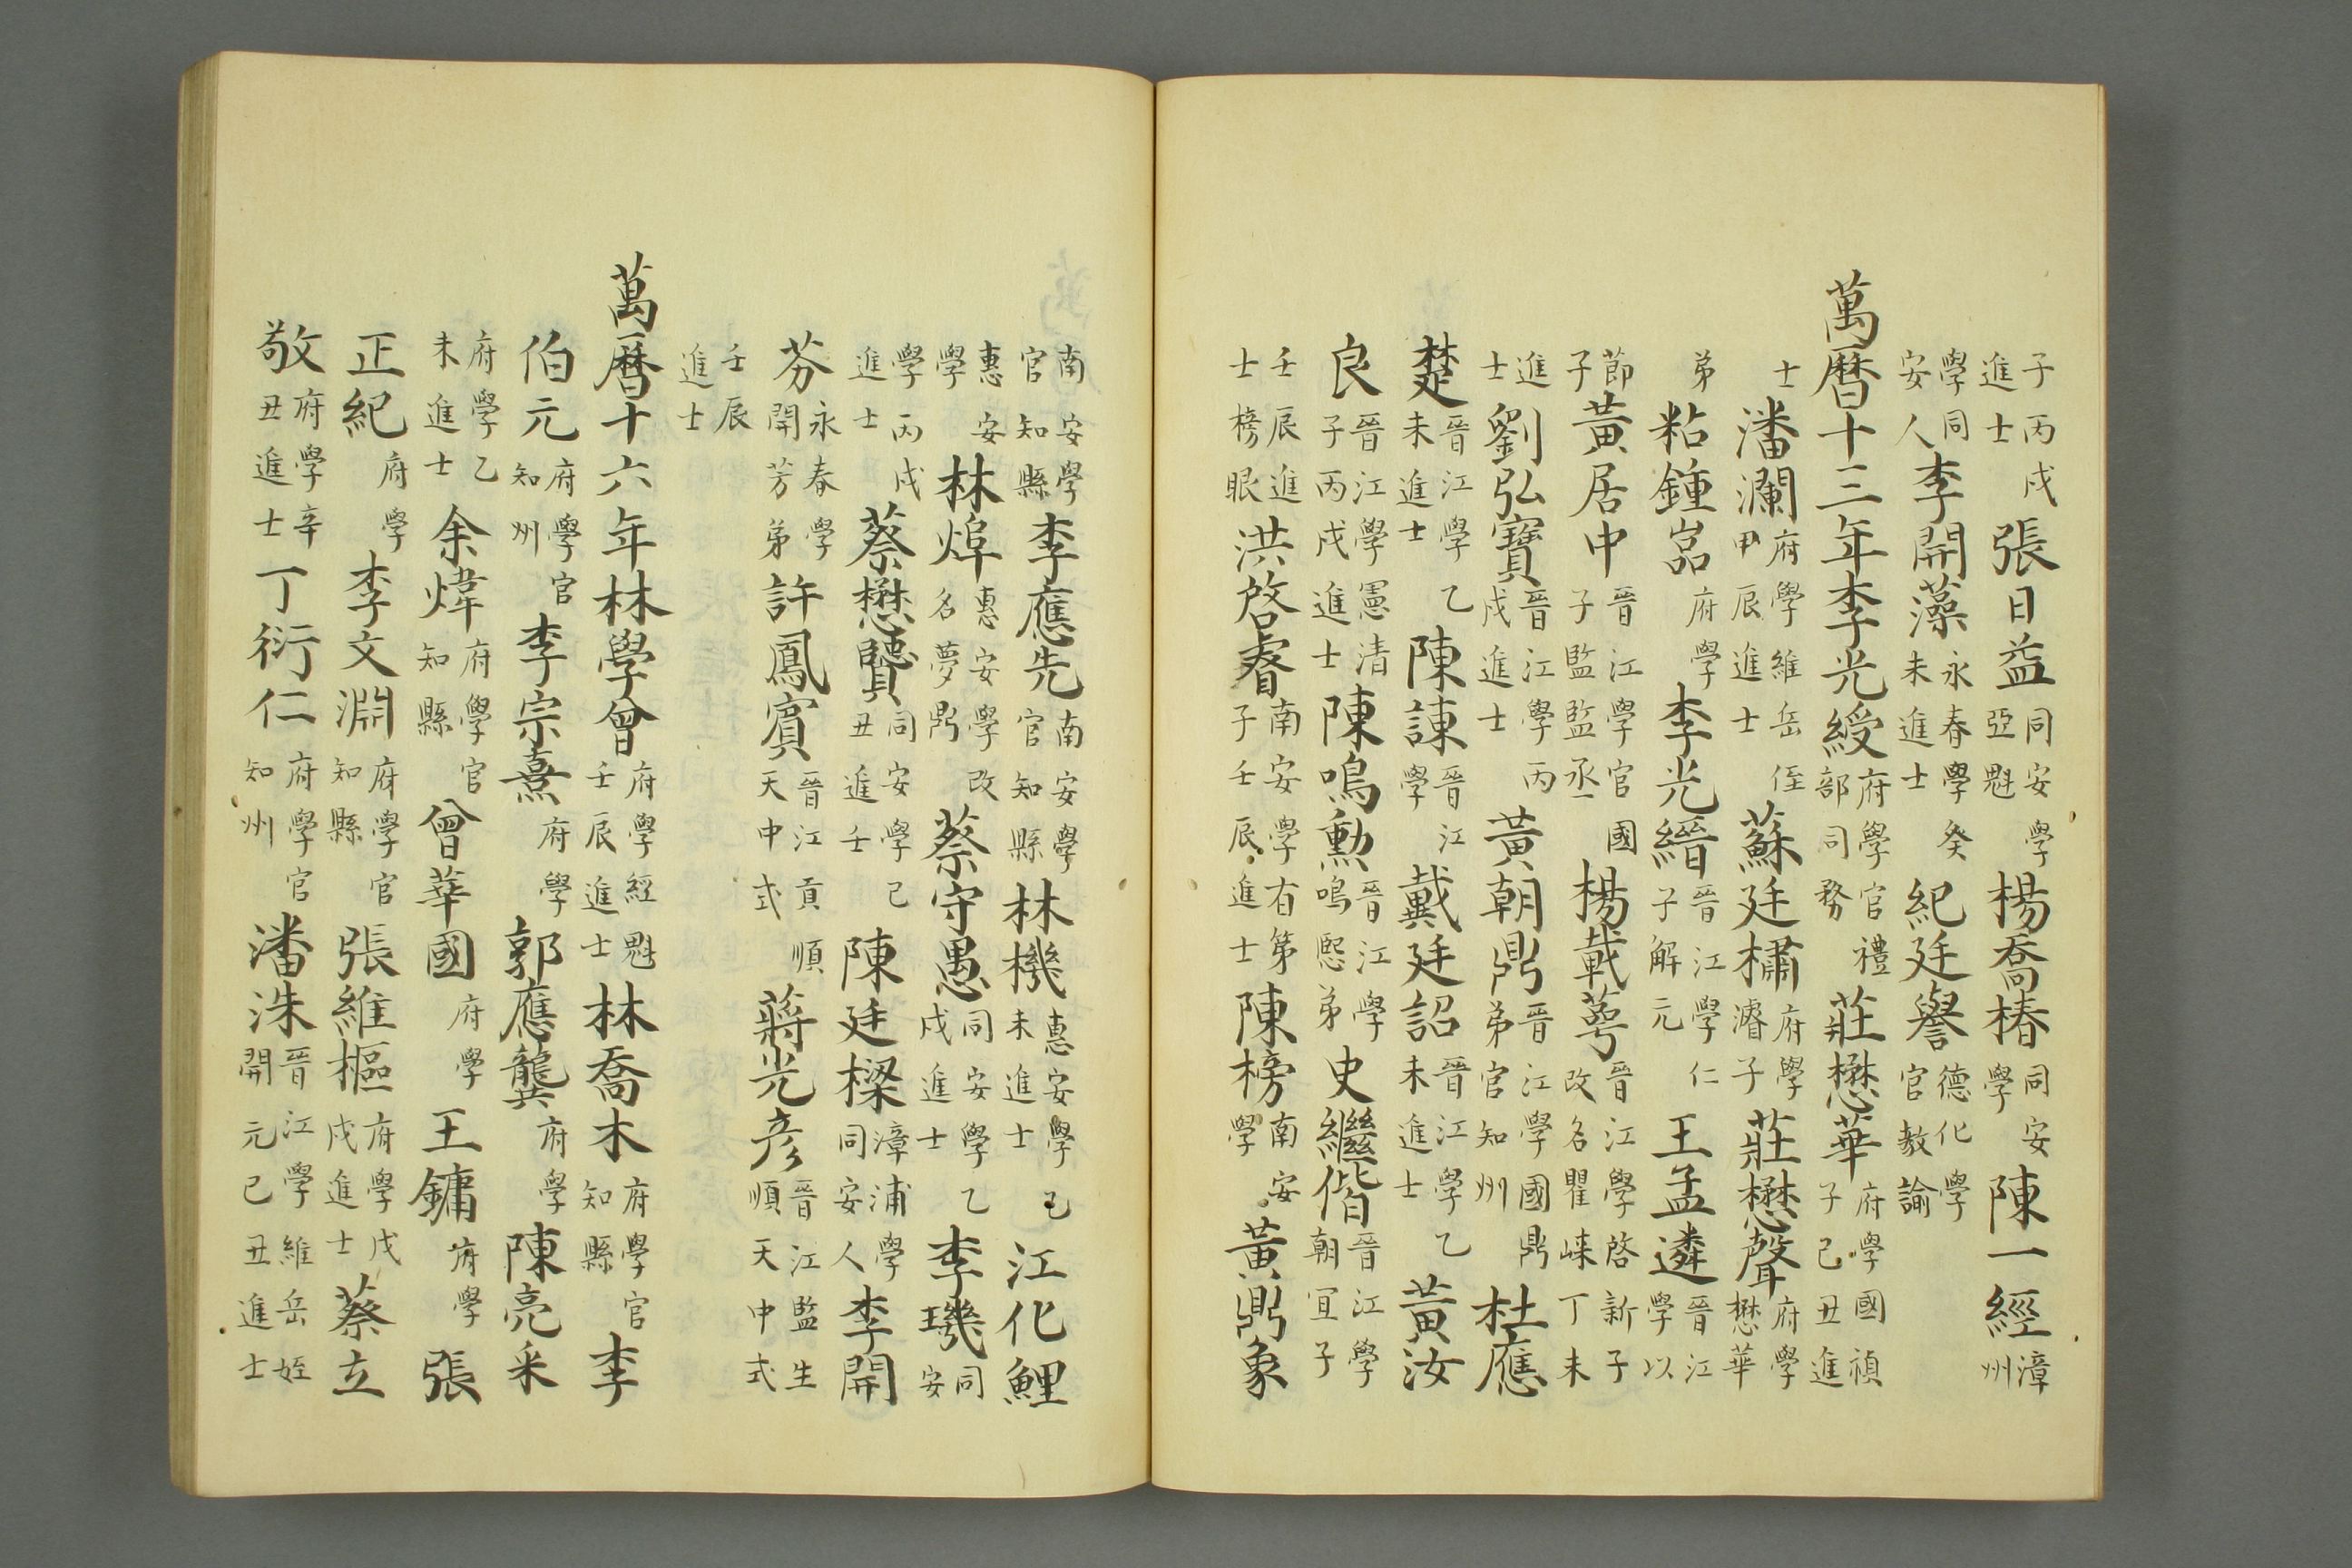 子丙戌進士張日益同安學亞魁楊喬椿同安學陳一經漳州
學同安人李開藻永春學癸未進士紀廷譽德化學官教諭
萬曆十三年李光綬府學官禮部司務莊懋華府學國禎子己丑進
士潘瀾府學維岳侄甲辰進士蘇廷橚府學濬子莊懋聲府學懋華
弟粘鍾嵓府學李光縉晉江學仁子解元王孟遴晉江學以
節子黃居中晉江學官國子監監丞楊載蕚晉江學啓新子改名瞿崍丁未
進士劉弘寶晉江學丙戌進士黃朝鼎晉江學國鼎弟官知州杜應
楚晉江學乙未進士陳諫晉江學戴廷詔晉江學乙未進士黃汝
良晉江學憲清子丙戌進士陳鳴勲晉江學鳴熈弟史繼偕晉江學朝宜子
壬辰進士榜眼洪啓睿南安學有第子壬辰進士陳榜南安學黃鼎象
南安學官知縣李應先南安學官知縣林機惠安學己未進士江化鯉
惠安學林㷆惠安學改名夢鼎蔡守愚同安學乙戌進士李璣同安
學丙戌進士蔡懋賢同安學己丑進士陳廷樑漳浦學同安人李開
芬永春學開芳弟許鳳賓晉江貢順天中式蔣光彥晉江監生順天中式
壬辰進士
萬曆十六年林學曾府學經魁壬辰進士林喬木府學官知縣李
伯元府學官知州李宗熹府學郭應龔府學陳亮采
府學乙未進士余煒府學官知縣曾華國府學王鏞府學張
正紀府學李文淵府學官知縣張維樞府學戊戌進士蔡立
敬府學辛丑進士丁衍仁府學官知州潘洙晉江學維岳姪開元己丑進士